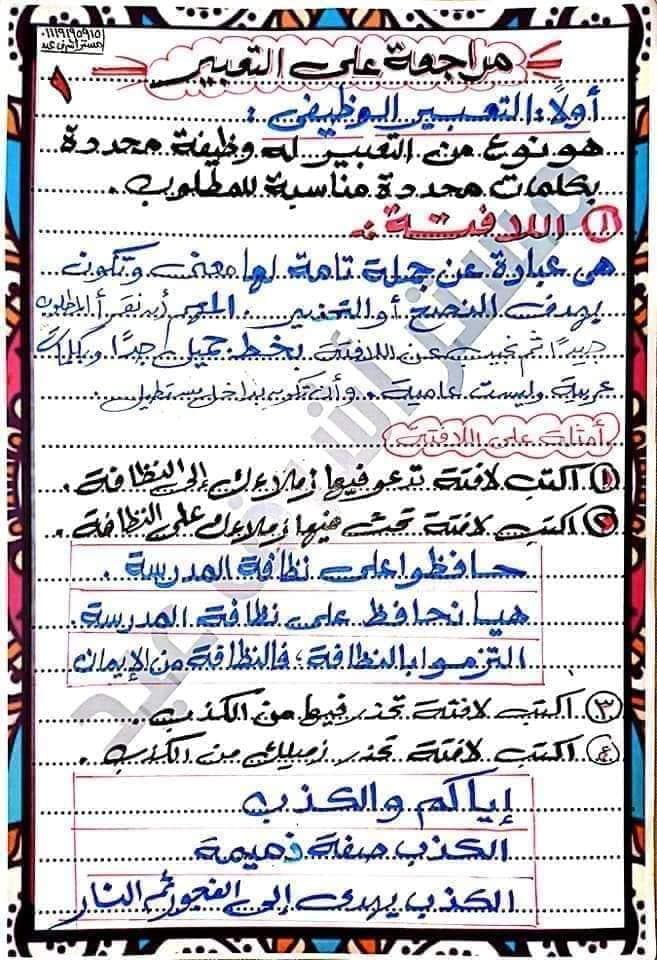 ٠١١١٩١٩٥٩١٥
مستر أشرف عيد
مراجعة على التعبير
٩
أولاً: التعبير الوظيفى :
هو نوع من التعبير له وظيفة محددة
بكلمات محددة مناسبة للمطلوب .
١ اللافتة :
هى عبارة عن جملة تامة لها معنى وتكون
بهدف النصح أو التحذير . المهم أن نقرأ المطلوب
جيدًا ثم نجيب عن اللافتة بخط جميل جدًا وبكلمات
عربية وليست عامية . وأن تكون بداخل مستطيل .
أمثلة على اللافتة
١ اكتب لافتة تدعو فيها زملاءك إلى النظافة .
٢ اكتب لافتة تحث فيها زملاءك على النظافة .
حافظوا على نظافة المدرسة .
هيا نحافظ على نظافة المدرسة .
التزموا بالنظافة ، فالنظافة من الإيمان
٣ اكتب لافتة تحذر فيها من الكذب .
٤ اكتب لافتة تحذر زميلك من الكذب .
إياكم والكذب
الكذب صفة ذميمة
الكذب يهدى إلى الفجور ثم النار
مستر أشرف عيد